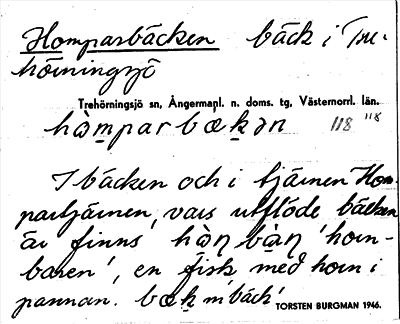 Homparbäcken bäck i Tre-
hörningsjö
Trehörningsjö sn, Ångermanl. n. doms. tg, Västernorrl. län.
hòm̱parbæḵən 118 118
I bäcken och i tjärnen Hom-
partjärnen, vars utflöde bäcken
är finns, hòƞ bàƞ 'horn-
baren', en fisk med horn i
pannan. bæḵ m 'bäck'
TORSTEN BURGMAN 1946.